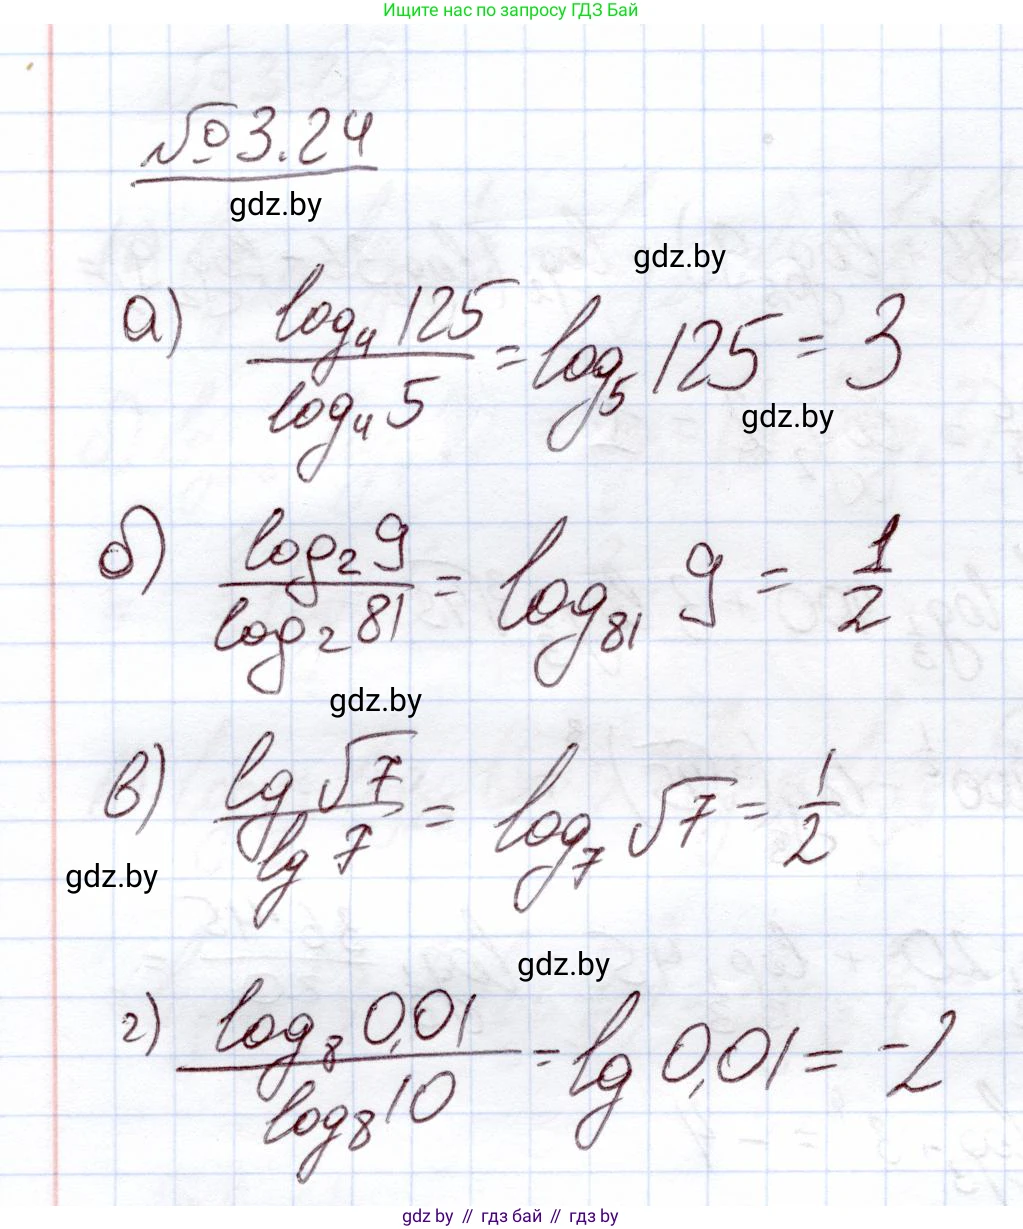 Ищите нас по запросу ГДЗ Бай
№ 3.24
gdz.by
gdz.by
а) log₄ 125 / log₄ 5 = log₅ 125 = 3
gdz.by
б) log₂ 9 / log₂ 81 = log₈₁ 9 = 1/2
gdz.by
в) lg √7 / lg 7 = log₇ √7 = 1/2
gdz.by
gdz.by
г) log₈ 0,01 / log₈ 10 = lg 0,01 = -2
gdz.by // гдз бай // gdz.by